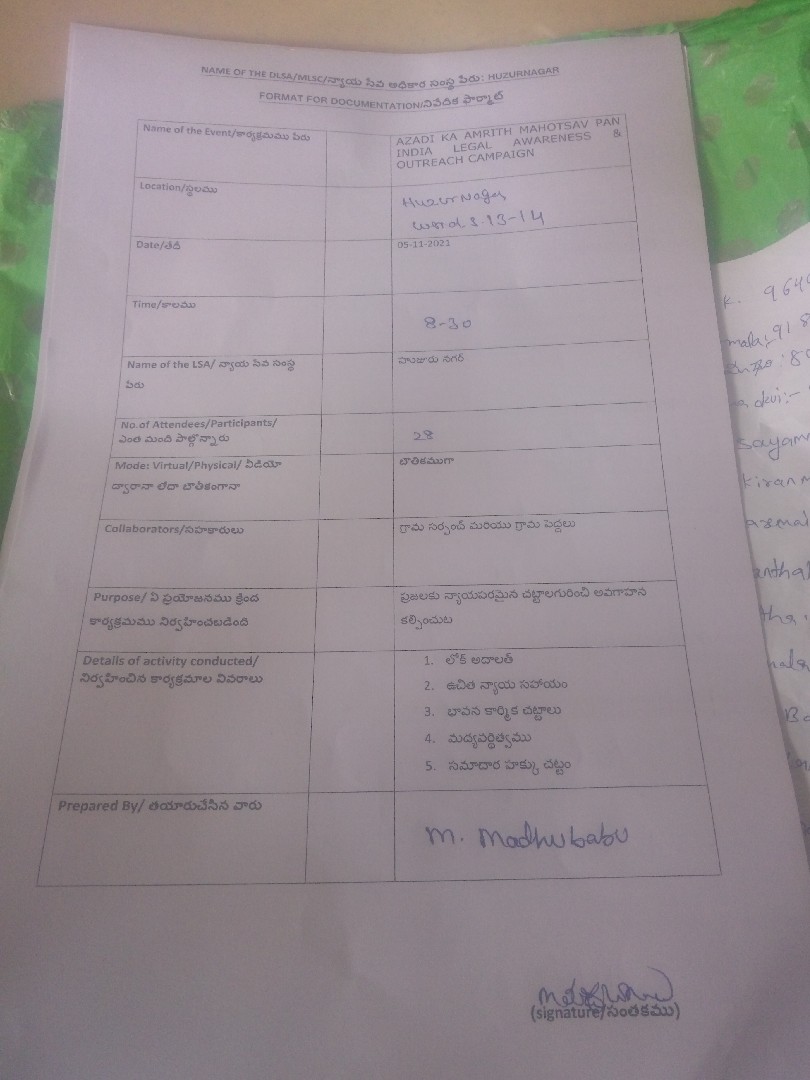 NAME OF THE DLSA/MLSC/న్యాయ సేవ అధికార సంస్థ పేరు: HUZURNAGAR
FORMAT FOR DOCUMENTATION/నివేదిక ఫార్మాట్
Name of the Event/కార్యక్రమము పేరు
AZADI KA AMRITH MAHOTSAV PAN
INDIA LEGAL AWARENESS &
OUTREACH CAMPAIGN
Location/స్థలము
Huzurnagar
wards-13-14
Date/తేదీ
05-11-2021
Time/కాలము
8-30
Name of the LSA/ న్యాయ సేవ సంస్థ
పేరు
హుజురు నగర్
No.of Attendees/Participants/
ఎంత మంది పాల్గొన్నారు
28
Mode: Virtual/Physical/ వీడియో
ద్వారానా లేదా బౌతికంగానా
బౌతికముగా
Collaborators/సహకారులు
గ్రామ సర్పంచ్ మరియు గ్రామ పెద్దలు
Purpose/ ఏ ప్రయోజనము క్రింద
కార్యక్రమము నిర్వహించబడింది
ప్రజలకు న్యాయపరమైన చట్టాలగురించి అవగాహన
కల్పించుట
Details of activity conducted/
నిర్వహించిన కార్యక్రమాల వివరాలు
1. లోక్ అదాలత్
2. ఉచిత న్యాయ సహాయం
3. భావన కార్మిక చట్టాలు
4. మద్యవర్థిత్వము
5. సమాచార హక్కు చట్టం
Prepared By/ తయారుచేసిన వారు
M. Madhubabu
(signature/సంతకము)
K. 964
mala:- 918
devi:-
sayam
kiran m